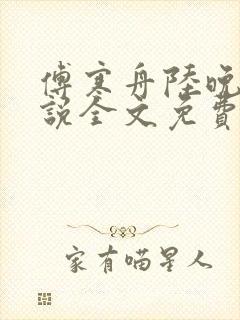 傅寒舟陸晚
說全文免費
家有喵星人